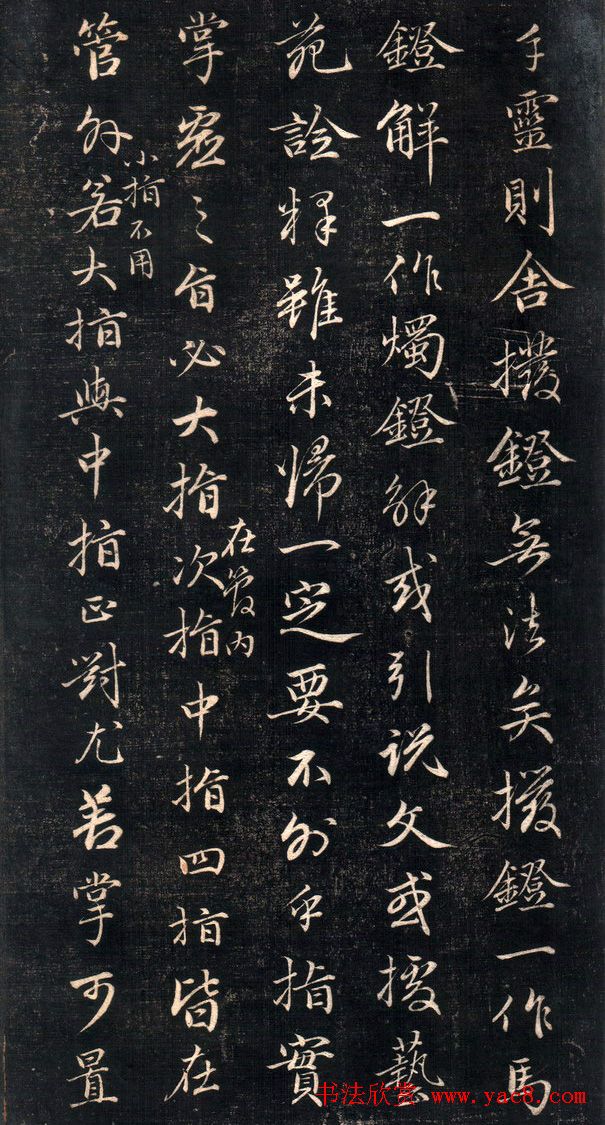 手靈則舍撥鐙無法矣撥鐙一作馬
鐙解一作燭鐙解或引说文或援藝
苑詮釋雖未歸一定要不外乎指實
掌虛之旨必大指次指中指四指皆在
在管内
管外若大指與中指正對尤善掌可置
小指不用
书法欣赏 www.yac8.com